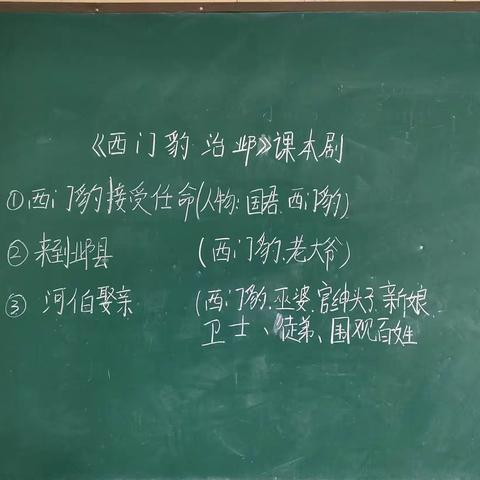 《西门豹治邺》课本剧
①西门豹接受任命(人物:国君、西门豹)
②来到邺县 (西门豹、老大爷)
③ 河伯娶亲 (西门豹、巫婆、官绅头子、新娘、
卫士、徒弟、围观百姓